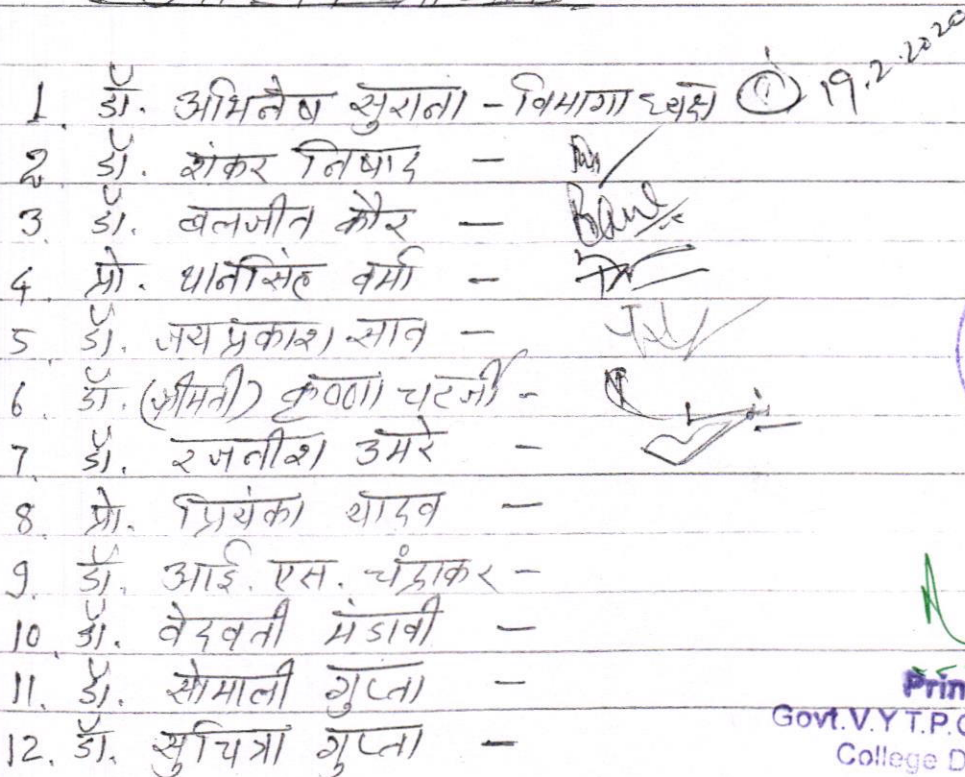 1. डॉ. अभिनेष सुराना - विभागाध्यक्ष 19.2.2020
2 डॉ. शंकर निषाद -
3 डॉ. बलजीत कौर -
4 प्रो. थानसिंह वर्मा -
5 डॉ. जय प्रकाश साव -
6 डॉ. (श्रीमती) कृष्णा चटर्जी -
7. डॉ. रजनीश उमरे -
8. प्रो. प्रियंका यादव -
9. डॉ. आई. एस. चंद्राकर -
10. डॉ. वेदवती मंडावी -
11. डॉ. सोमाली गुप्ता -
12. डॉ. सुचित्रा गुप्ता -
Prin
Govt.V.Y T.P.C
College D